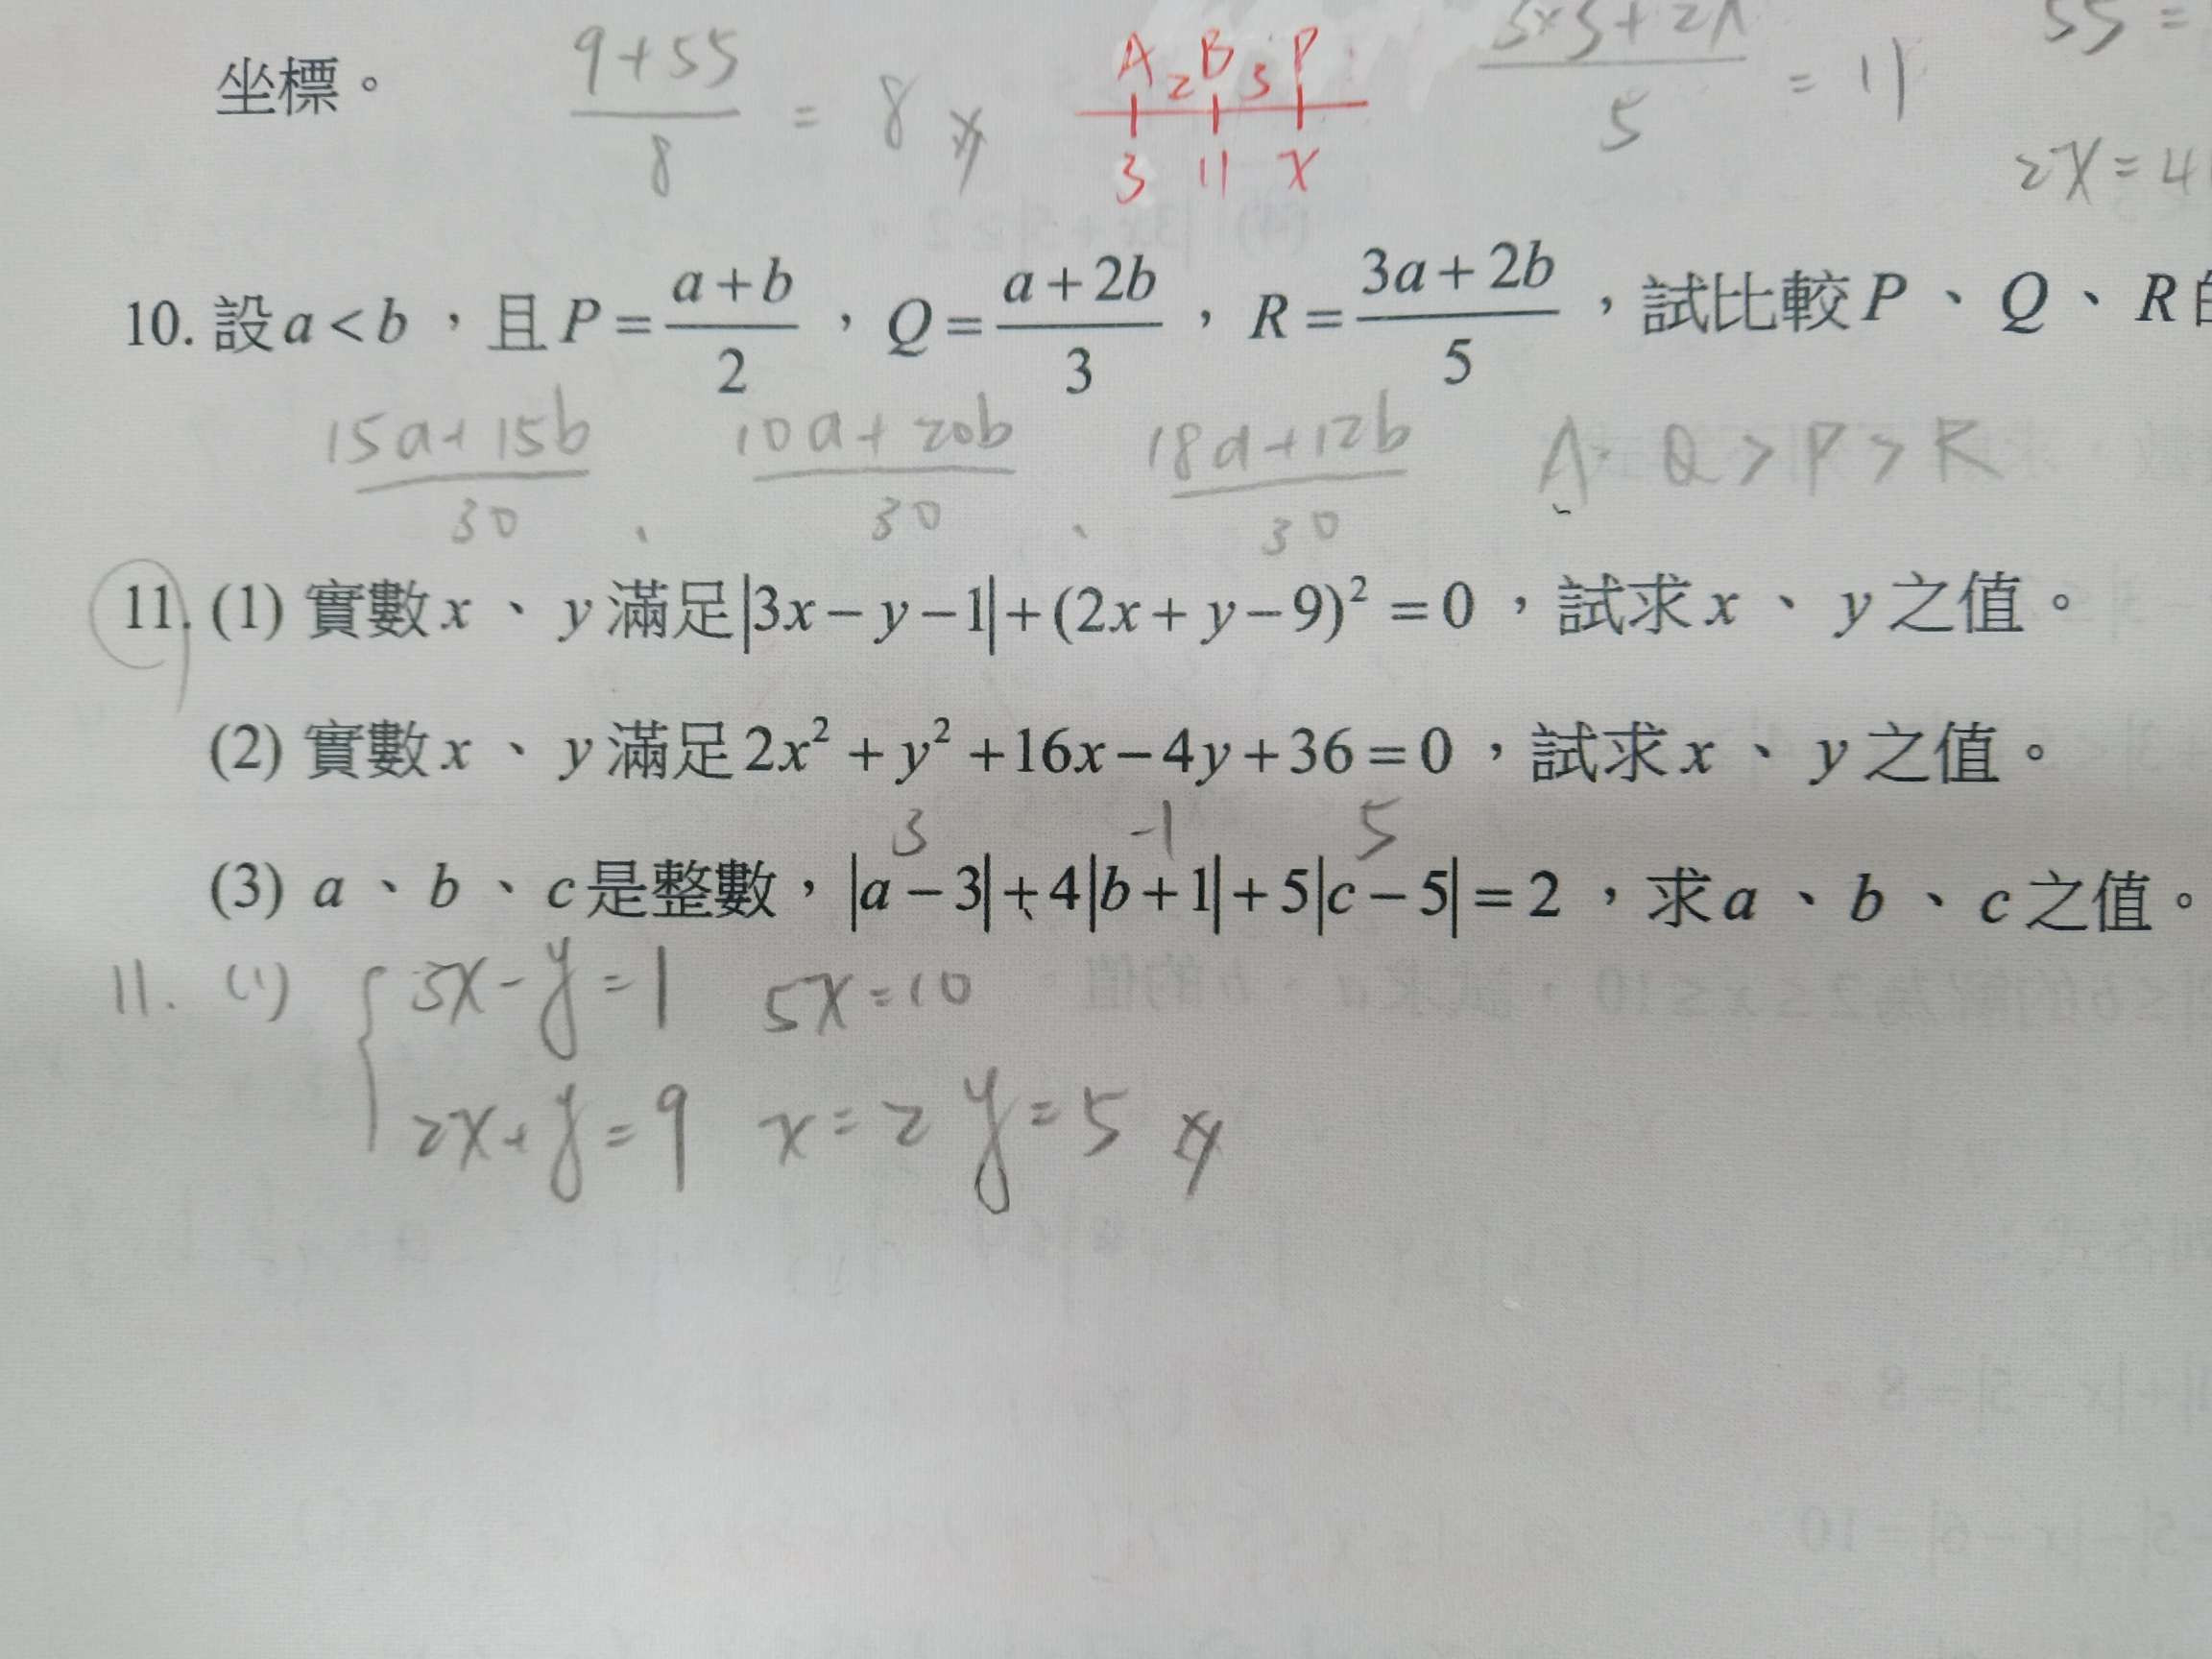 坐標。 9+55/8 = 8 A 2 B 3 P 3 11 x /5 = 11 55 =
2x = 4
10. 設 a < b ，且 P = a+b/2 ， Q = a+2b/3 ， R = 3a+2b/5 ，試比較 P 、 Q 、 R
15a+15b/30 、 10a+20b/30 、 18a+12b/30 A: Q > P > R
11. (1) 實數 x 、 y 滿足 |3x − y − 1| + (2x + y − 9)² = 0 ，試求 x 、 y 之值。
(2) 實數 x 、 y 滿足 2x² + y² + 16x − 4y + 36 = 0 ，試求 x 、 y 之值。
3 -1 5
(3) a 、 b 、 c 是整數， |a − 3| + 4|b + 1| + 5|c − 5| = 2 ，求 a 、 b 、 c 之值。
11. (1) 3x - y = 1 5x = 10
2x + y = 9 x = 2 y = 5